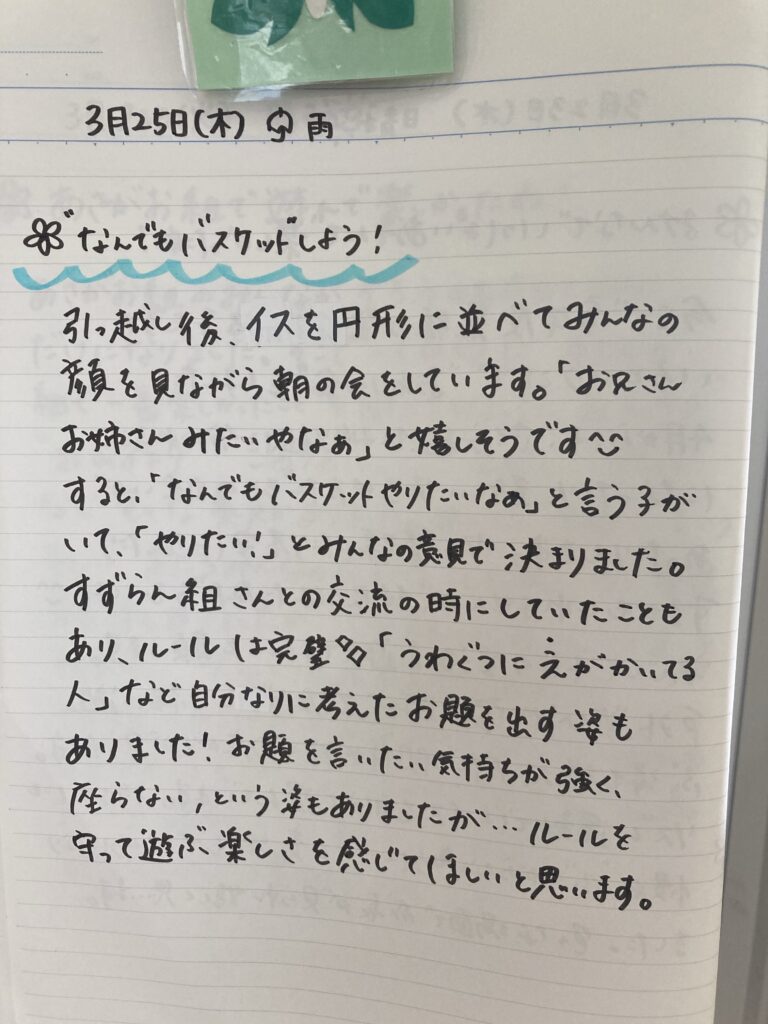 3月25日(木) 雨
"なんでもバスケット"しよう!
引っ越し後、イスを円形に並べてみんなの
顔を見ながら朝の会をしています。「お兄さん
お姉さんみたいやなぁ」と嬉しそうです
すると、「なんでもバスケットやりたいなぁ」と言う子が
いて、「やりたい!」とみんなの意見で決まりました。
すずらん組さんとの交流の時にしていたことも
あり、ルールは完璧「うわぐつにえがかいてる
人」など自分なりに考えたお題を出す姿も
ありました!お題を言いたい気持ちが強く、
座らない、という姿もありましたが…ルールを
守って遊ぶ楽しさを感じてほしいと思います。